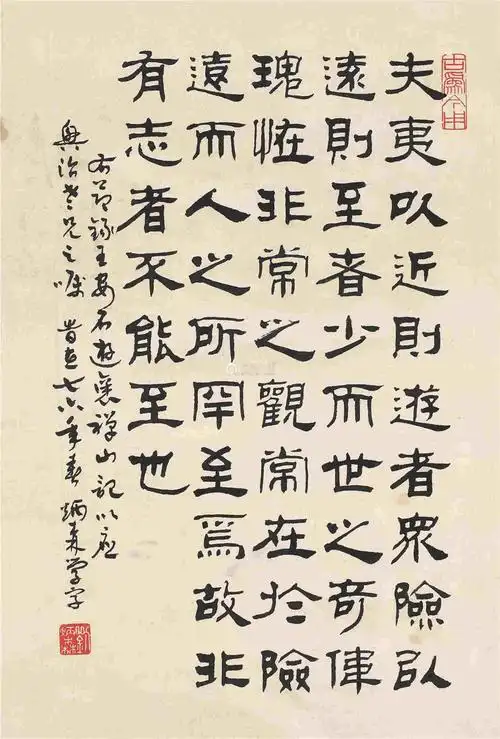 古為今用
夫夷以近則遊者眾險以
遠則至者少而世之奇偉
瑰恠非常之觀常在於險
遠而人之所罕至焉故非
有志者不能至也
右節錄王安石遊褒禅山記以應
興治老兄之嘱 旹在七六年春 炳森学字
劉炳森